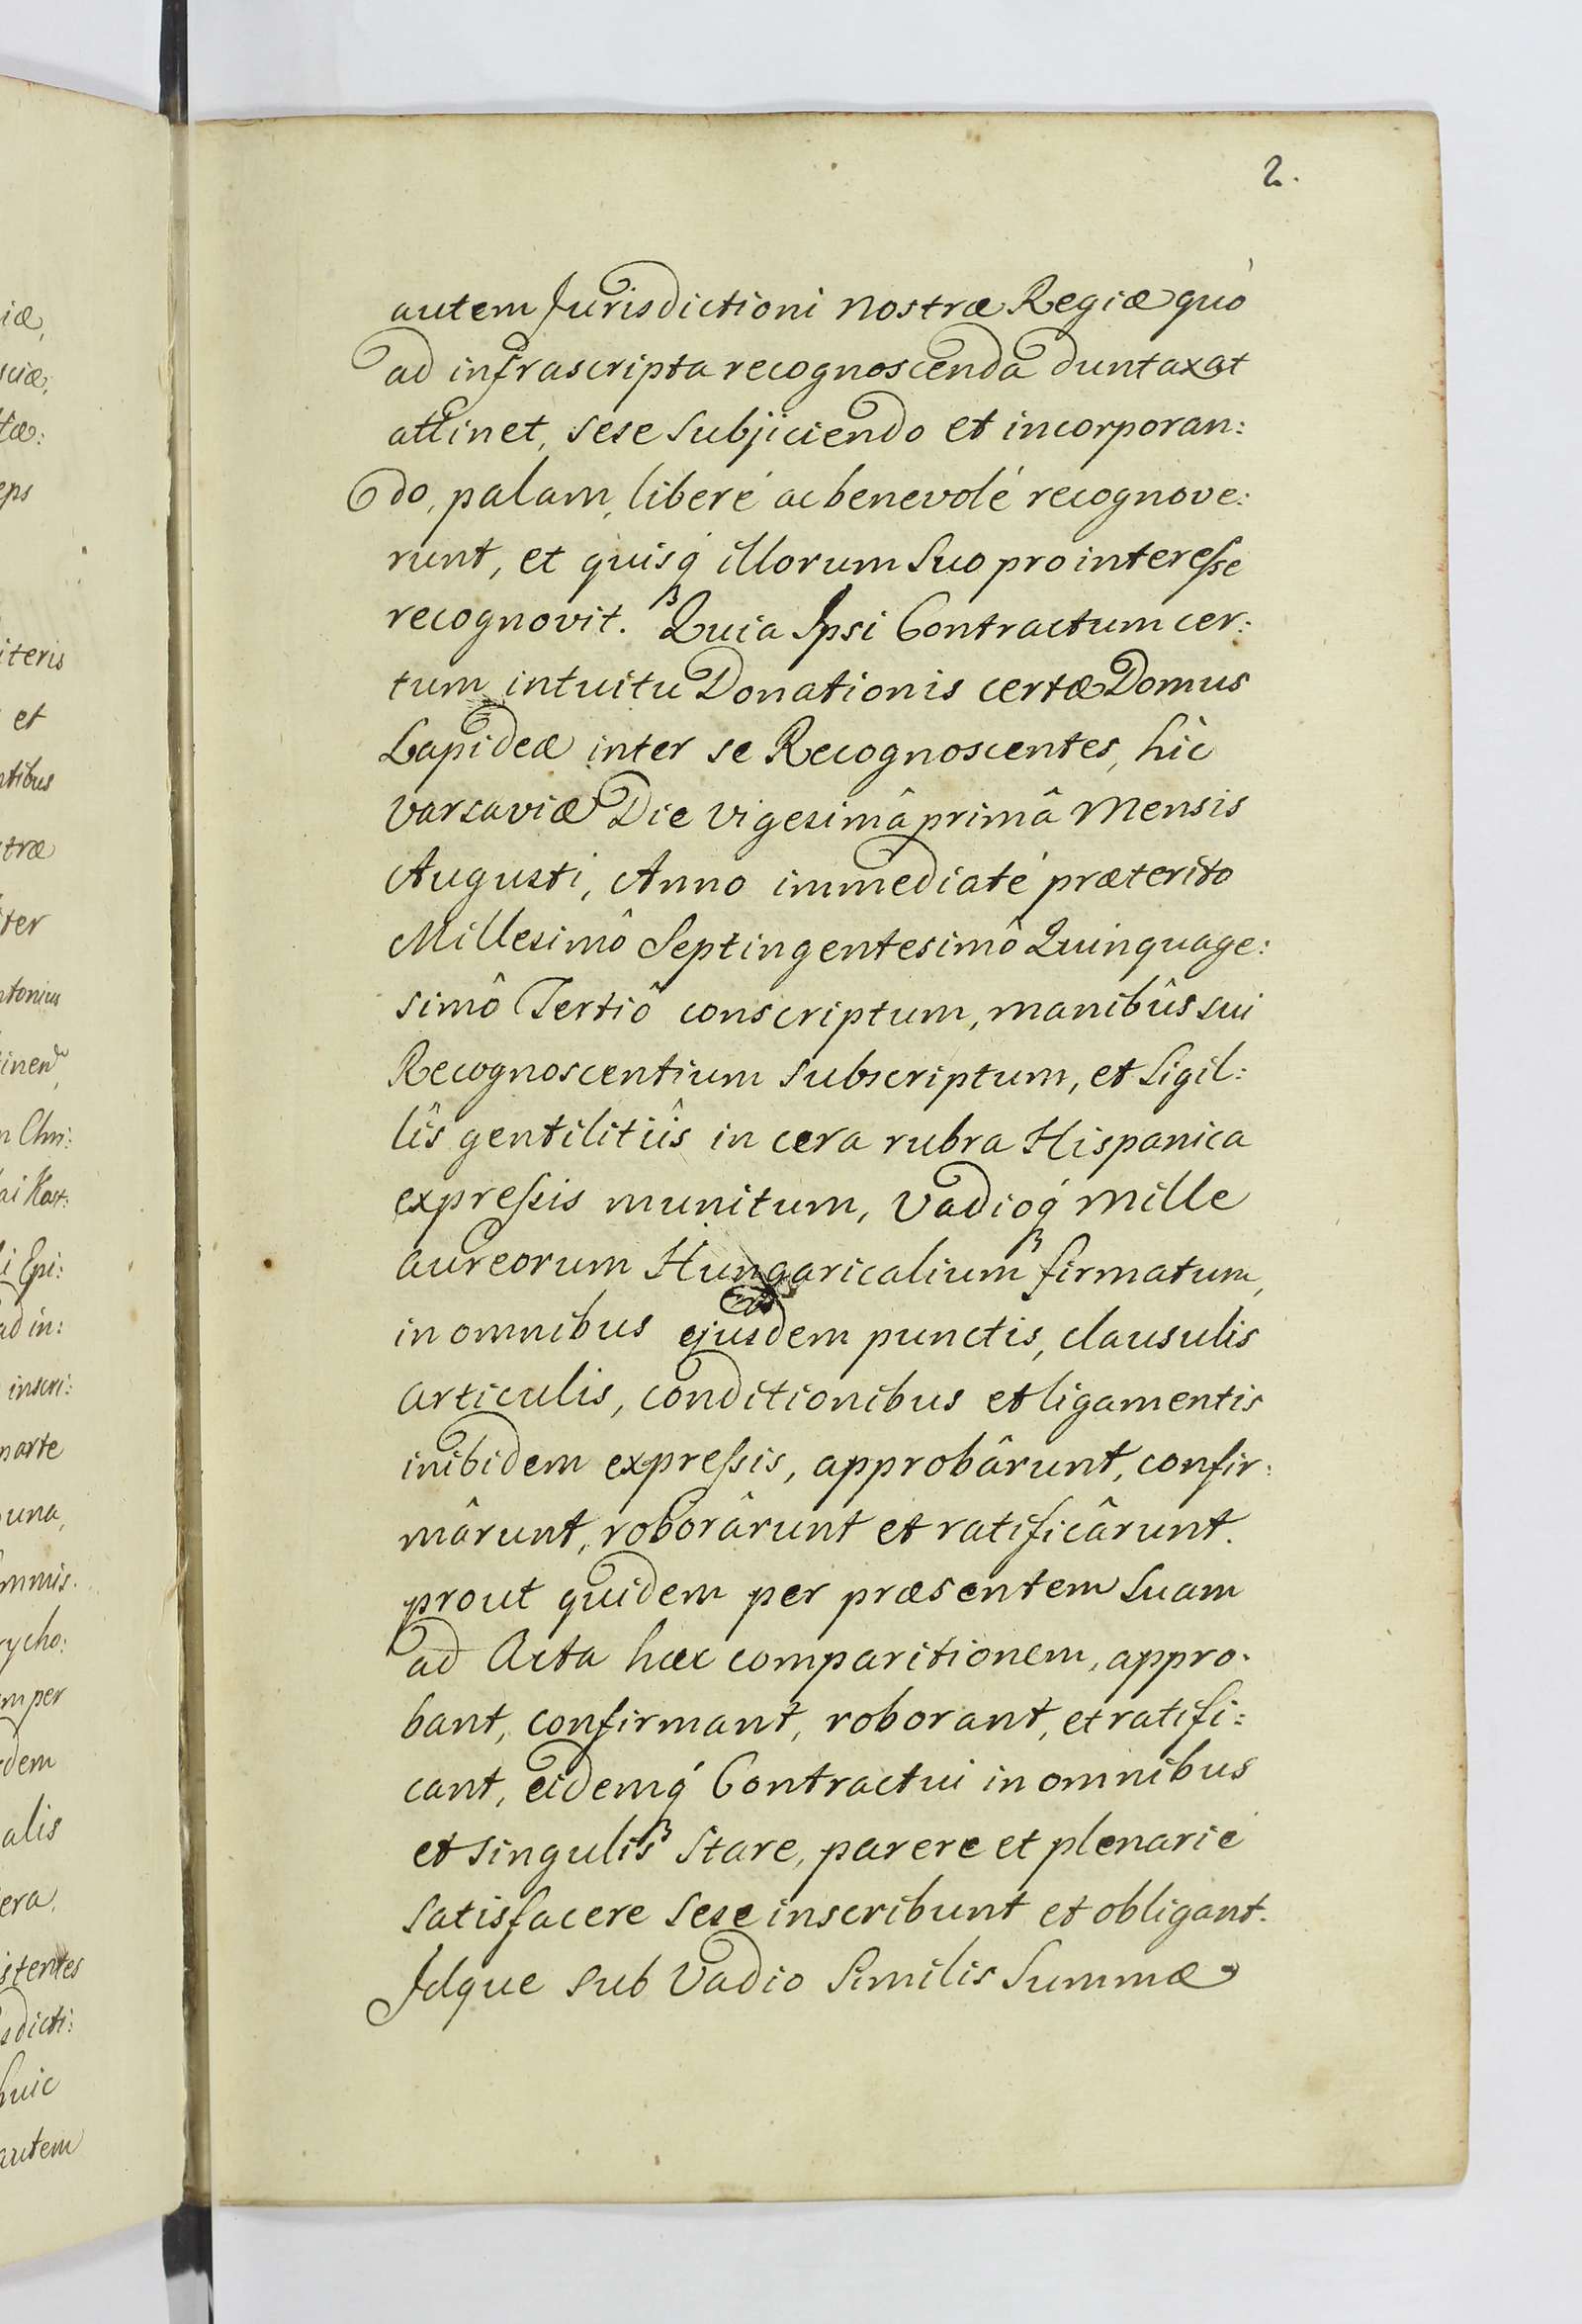 2.
autem Jurisdictioni nostræ Regiæ quò
ad infrascripta recognoscenda duntaxat
attinet, sese subjiciendo et incorporan:
do, palam, liberé ac benevolé recognove:
runt, et quisq́ illorum suo pro interesse
recognovit. Quia Ipsi Contractum cer:
tum intuitu Donationis certæ Domus
Lapideæ inter se Recognoscentes, hìc
Varsaviæ Die vigesimâ primâ Mensis
Augusti, Anno immediaté præterito
Millesimô Septingentesimô Quinquage:
simô Tertiô conscriptum, manibûs sui
Recognoscentium subscriptum, et Sigil:
lîs gentilitiîs in cera rubra Hispanica
expressis munitum, Vadioq́ mille
aureorum Hungaricalium firmatum,
in omnibus ejusdem punctis, clausulis
articulis, conditionibus et ligamentis
inibidem expressis, approbârunt, confir:
mârunt, roborârunt et ratificârunt.
prout quidem per præsentem suam
ad Acta hæc comparitionem, appro:
bant, confirmant, roborant, et ratifi:
cant, eidemq́ Contractui in omnibus
et singulis stare, parere et plenarié
satisfacere sese inscribunt et obligant.
Idque sub Vadio similis summæ
iæ,
sciæ,
tæ:
eps
iteris
et
ntibus
træ
ter
ntonius
n Chri:
ai Kast:
i Epi:
ad in:
inscri:
marte
una,
mmis.
rycho:
m per
dem
alis
era,
istentes
sdicti:
huic
autem